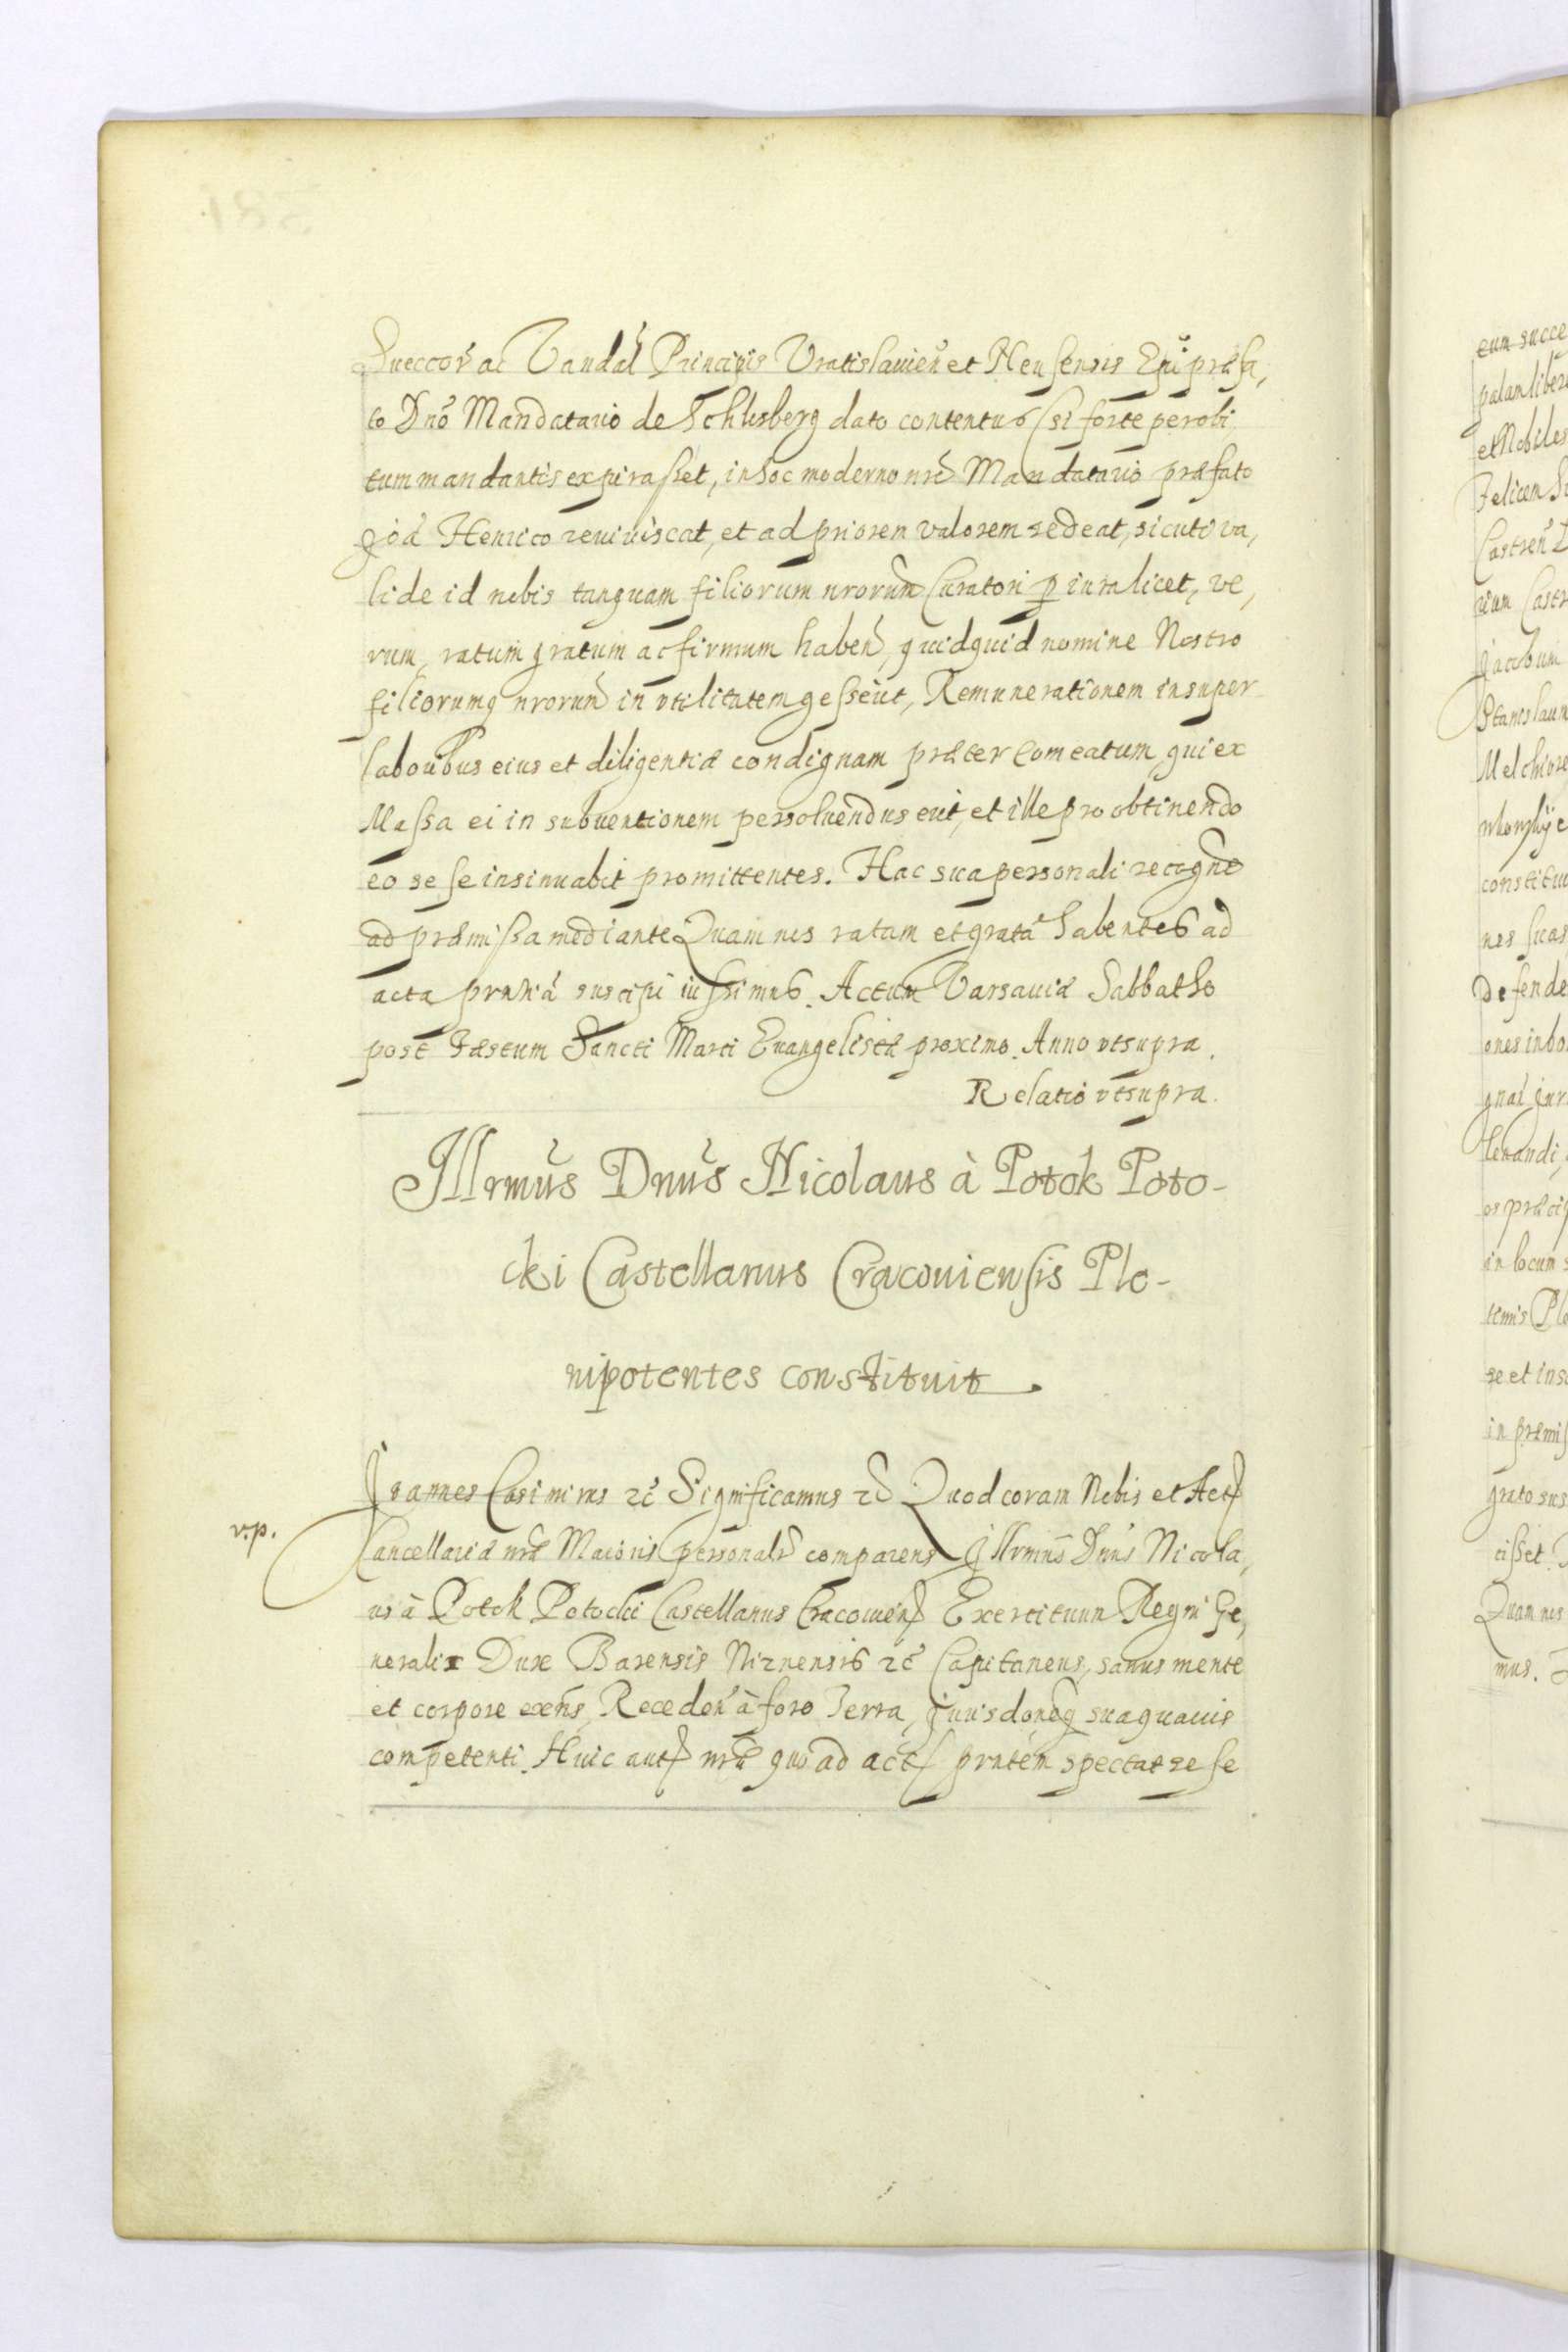 Sueccor̃ ac Vandal Principis Vratislauien̄ et Neusensis Epi præfa,
to Dno Mandatario de Schlisberg dato contentus (si forte per obi
tum mandantis expirasset, in hoc moderno nro Mandatario præfato
Henrico reuiuiscat, et ad priorem valorem redeat, sicuti va,
lide id nobis tanquam filiorum nrorum Curatori p iura licet, ve,
rum, ratum gratum ac firmum haben, quidquid nomine Nostro
filiorumq nrorum in vtilitatem gesserit, Remunerationem insuper
laboribus eius et diligentiæ condignam præter Comeatum, qui ex
Massa ei in subuentionem persoluendus erit, et ille pro obtinendo
eo sese insinuabit promittentes. Hac sua personali recogne
ad præmissa mediante Quam nos ratam et gratā habentes ad
acta prntia suscipi iussimus. Actum Varsauiæ Sabbatho
post Fæstum Sancti Marci Euangelistæ proximo. Anno vtsupra.
Relatio vtsupra.
Illrmus Dnus Nicolaus à Potok Poto-
cki Castellanus Cracouiensis Ple-
nipotentes constituit
Ioannes Casimirus rc Significamus rc Quod coram Nobis et Act
v.p.
Cancellariæ nræ Maioris personalr comparens Illrmus Dnus Nicola,
us à Potok Potocki Castellanus Cracouien Exercituum Regni Ge,
neralis Dux Barensis Niznensis rc Capitaneus, sanus mente
et corpore exns, Receden à foro Terra, Iurisdoneq sua quauis
competenti. Huic aut nræ quo ad act prntem spectat sese
eum succe
palam liber
et Nobiles
Felicem
Castren
Castr
Iacobum
Stanislaum
Melchiore
constitu
nes suas
Defende
ones in bo
in locum
se et ins
in præmis
grato sus
cisset.
Quam nos
mus.